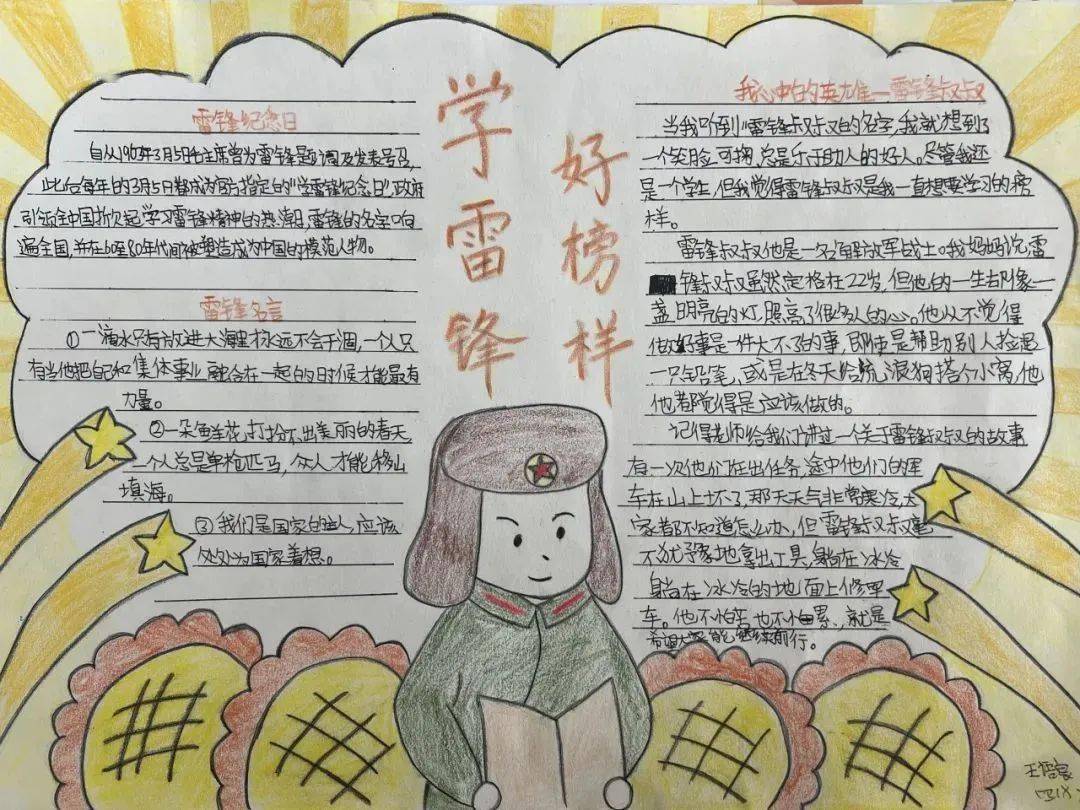 学雷锋
好榜样
雷锋纪念日
自从1963年3月5日毛主席曾为雷锋题词及发表号召,
此后每年的3月5日都成为官方指定的“学雷锋纪念日”,政府
引领全中国掀起学习雷锋精神的热潮,雷锋的名字响
遍全国,并在60至80年代间被塑造成为中国的模范人物。
雷锋名言
①一滴水只有放进大海里才永远不会干涸,一个人只
有当他把自己和集体事业融合在一起的时候才能最有
力量。
②一朵鲜花打扮不出美丽的春天,
一个人总是单枪匹马,众人才能移山
填海。
③我们是国家的主人,应该
处处为国家着想。
我心中的英雄—雷锋叔叔
当我听到“雷锋叔叔”的名字,我就想到了
一个笑脸可掬,总是乐于助人的好人。尽管我还
是一个学生,但我觉得雷锋叔叔是我一直想要学习的榜
样。
雷锋叔叔他是一名解放军战士。我妈妈说,雷
锋叔叔虽然定格在22岁,但他的一生却像一
盏明亮的灯,照亮了很多人的心。他从不觉得
做好事是一件大不了的事,即使是帮助别人捡起
一只铅笔,或是在冬天给流浪狗搭个小窝,他
他都觉得是应该做的。
记得老师给我们讲过一个关于雷锋叔叔的故事
有一次他们在出任务,途中他们的军
车在山上坏了,那天天气非常寒冷,大
家都不知道怎么办,但雷锋叔叔毫
不犹豫地拿出工具,躺在冰冷
躺在冰冷的地面上修理
车。他不怕苦也不怕累,就是
希望大家能继续前行。